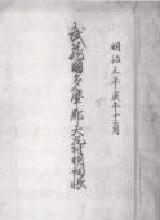 明治三年庚午十二月
武蔵國多摩郡大丸村明細帳